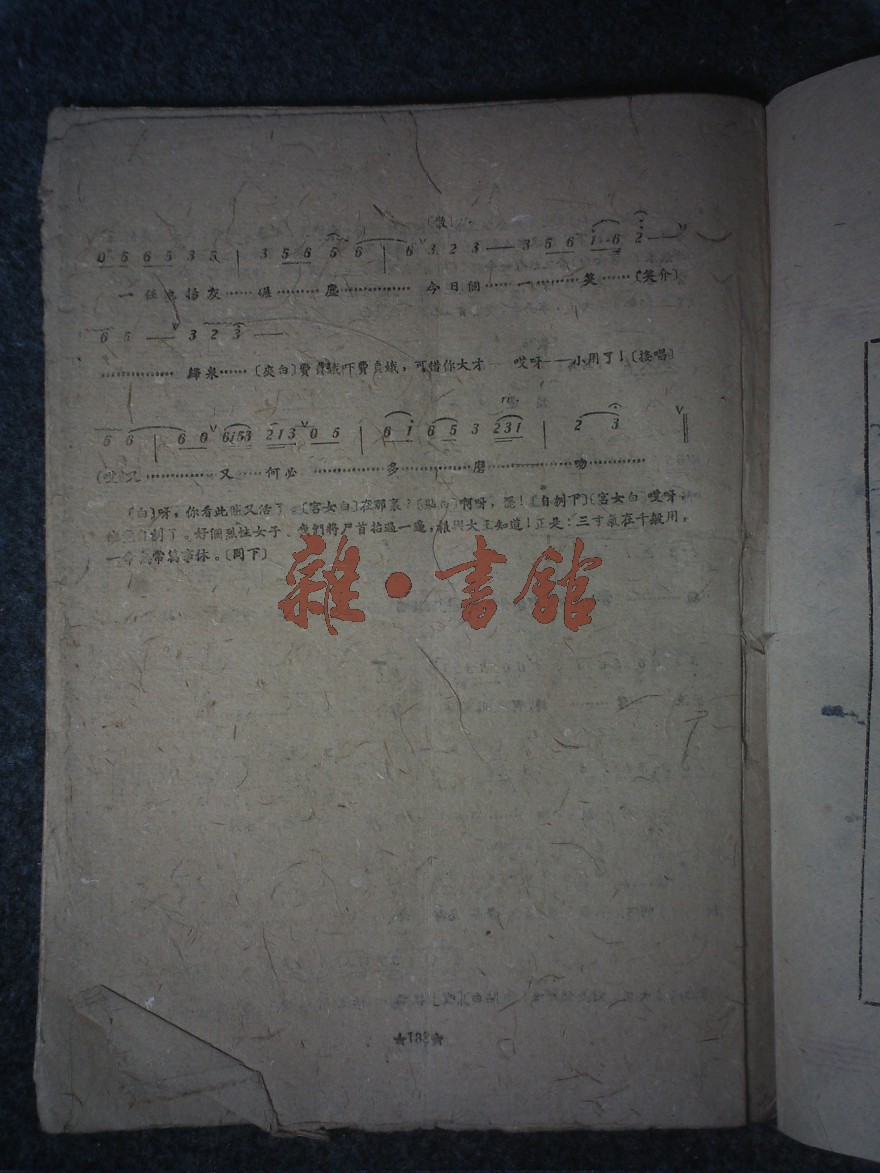 〔散〕
0 5 6 5 3 5 | 3 5 6 5 6 | 6 3 2 3 — 3 5 6 i 6 2 —
一任 揚灰……碾………塵……………今日個………一………笑……〔笑介〕
6 5 — 3 2 3 —
……………歸泉……〔夾白〕費貞娥吓費貞娥,可惜你大才——哎呀——小用了!〔接唱〕
6 6 | 6 0 6i53 213 0 5 | 6 i 6 5 3 231 | 2 3
又……………又……何必………………多………磨……………吻…………
〔白〕呀,你看此賊又活了 〔宮女白〕在那裏?啊呀,罷!〔自刎下〕〔宮女白〕哎呀,
自刎了。好個烈性女子。我們將尸首抬過一邊,報與大王知道!正是:三寸氣在千般用,
一 無常萬事休。〔同下〕
雜·書館